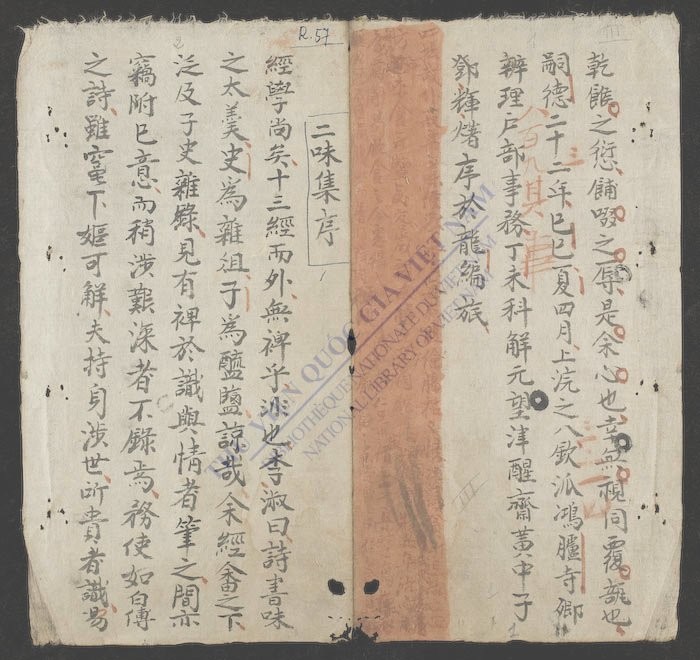 乾餱之愆餔啜之辱是余心也幸無視同覆瓿也
嗣德二十二年己巳夏四月上浣之八欽派鴻臚寺卿
辨理戶部事務丁未科解元望津醒齋黃中子
鄧輝㷆序於龍編旅
二味集序
經學尚矣十三經而外無裨乎涉也李淑曰詩書味
之太羹史為雜俎子為醯醢諒哉余經畬之下
泛及子史雜錄見有裨於識與情者筆之間亦
竊附己意而稍涉艱深者不錄焉務使如白傅
之詩雖竈下嫗可解夫持身涉世所貴者識易
R.57
THƯ VIỆN QUỐC GIA VIỆT NAM
BIBLIOTHÈQUE NATIONALE DU VIETNAM
NATIONAL LIBRARY OF VIETNAM